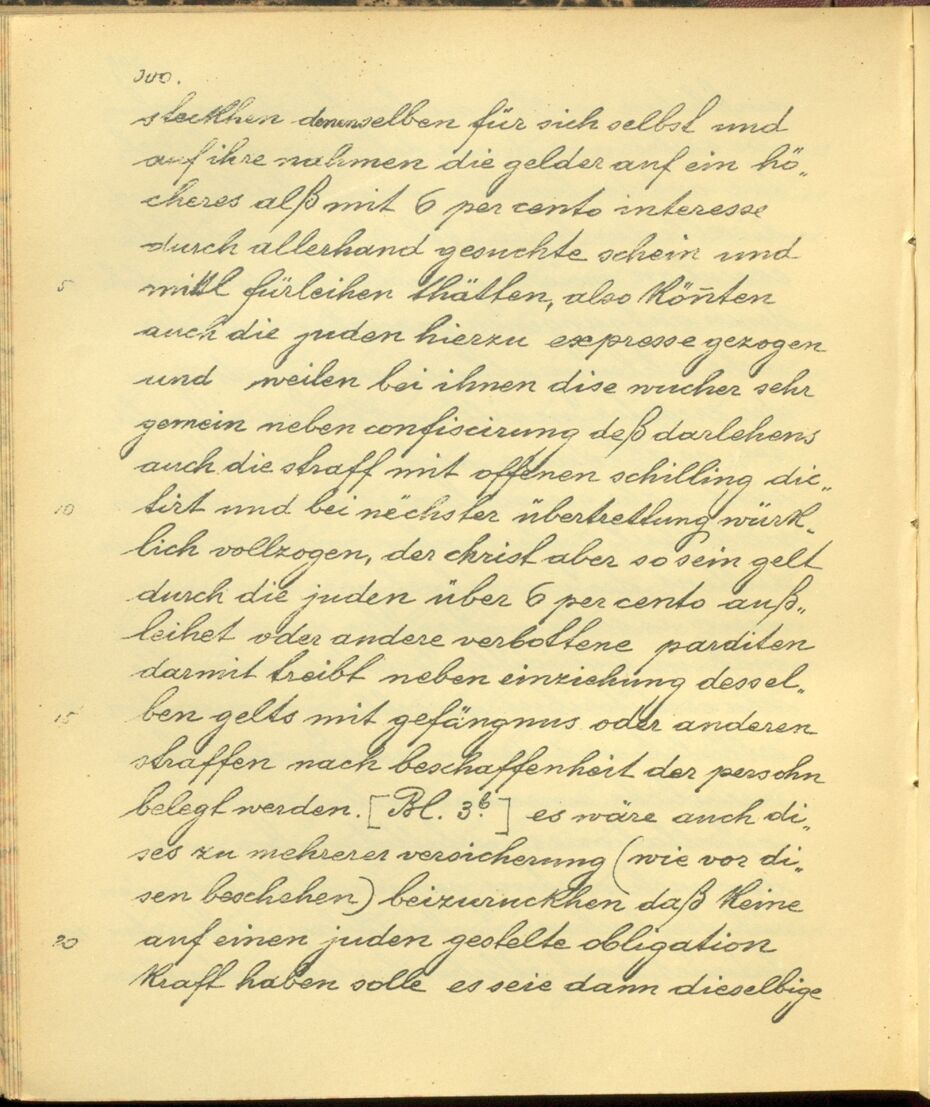 300.
steckhen denenselben für sich selbst und
auf ihre nahmen die gelder auf ein hö„
cheres alß mit 6 per cento interesse
durch allerhand gesuchte schein und
5 mittl fürleihen thätten, also kön̄ten
auch die juden hierzu expresse gezogen
und weilen bei ihnen dise wucher sehr
gemein neben confiscirung deß darlehens
auch die straff mit offenen schilling dic„
10 tirt und bei nëchster übertrettung würk„
lich vollzogen, der christ aber so sein gelt
durch die juden über 6 per cento auß„
leihet oder andere verbottene parditen
darmit treibt neben einziehung dessel„
15 ben gelts mit gefängnus oder anderen
straffen nach beschaffenheit der persohn
belegt werden. [Bl. 3b.] es wäre auch di„
ses zu mehrerer versicherung (wie vor di„
sen beschehen) beizuruckhen daß keine
20 auf einen juden gestelte obligation
kraft haben solle es seie dann dieselbige